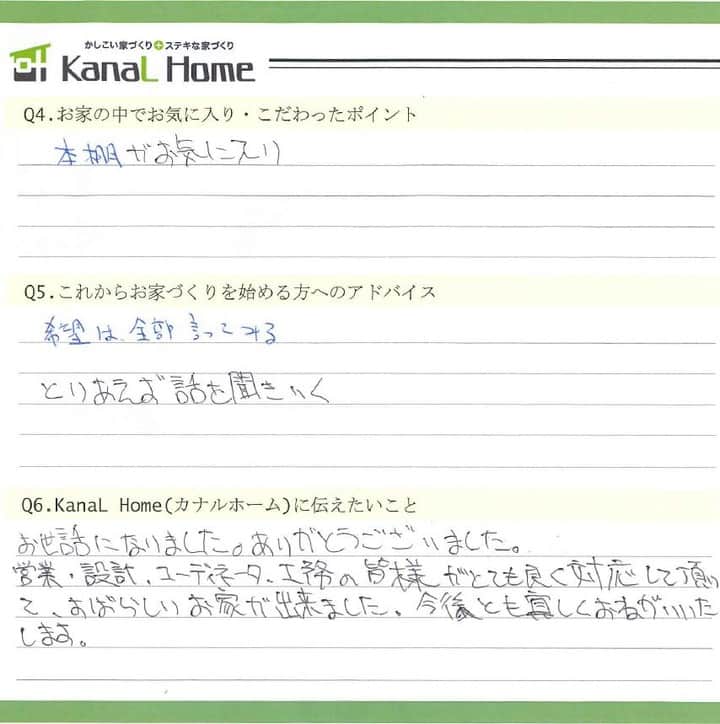 かしこい家づくり+ステキな家づくり
KanaL Home
Q4.お家の中でお気に入り・こだわったポイント
本棚がお気に入り
Q5.これからお家づくりを始める方へのアドバイス
希望は、全部言ってみる
とりあえず話を聞きいく
Q6.KanaL Home(カナルホーム)に伝えたいこと
お世話になりました。ありがとうございました。
営業・設計、コーディネータ、工務の皆様がとても良く対応して頂い
て、すばらしいお家が出来ました、今後とも宜しくおねがいいた
します。